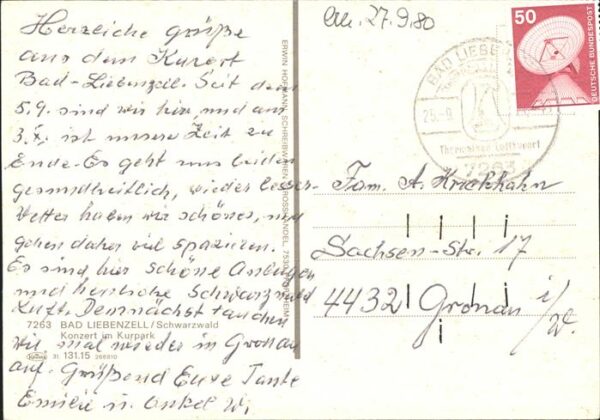 Herzliche Grüße
aus dem Kurort
Bad-Liebenzell. Seit dem
5.9. sind wir hier, und am
3.X. ist unsere Zeit zu
Ende. Es geht uns beiden
gesundheitlich, wieder besser.
Wetter haben wir schönes, und
gehen daher viel spazieren.
Es sind hier schöne Anlagen
und herrliche Schwarzwald
Luft. Demnächst tauchen
wir mal wieder in Gronau
auf. Grüßend Eure Tante
Emilie u. Onkel W.
7263 BAD LIEBENZELL/Schwarzwald
Konzert im Kurpark
31 131.15 266810
ERWIN HOFMANN, SCHREIBWAREN-GROSSHANDEL, 7530
27.9.80
50
DEUTSCHE BUNDESPOST
BAD LIEBE
25.-9.
Luftkurort
7263
Fam. A. Krickhahn
Sachsen-Str. 17
4432 Gronau i/W.